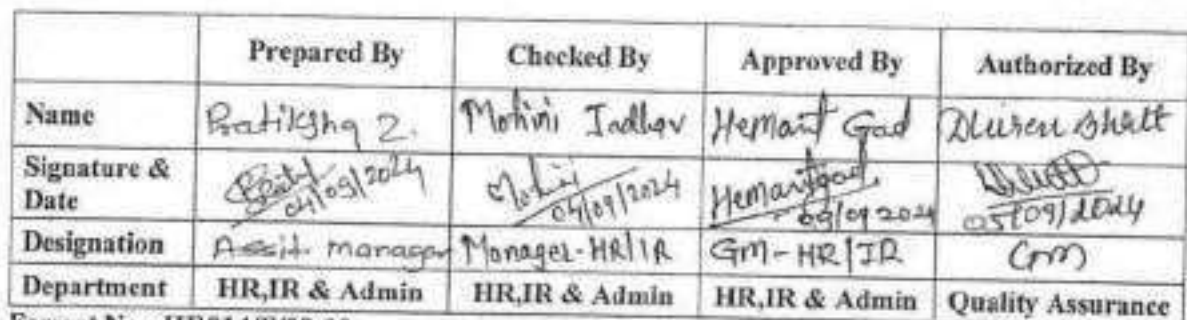 Prepared By Checked By Approved By Authorized By
Name Pratiksha Z. Mohini Jadhav Hemant Gad Dhiren Bhatt
Signature & Date 04/09/2024 Mohini 04/09/2024 Hemantgad 09/2024 05/09/2024
Designation Assit. manager Manager-HR/IR GM-HR/IR GM
Department HR,IR & Admin HR,IR & Admin HR,IR & Admin Quality Assurance